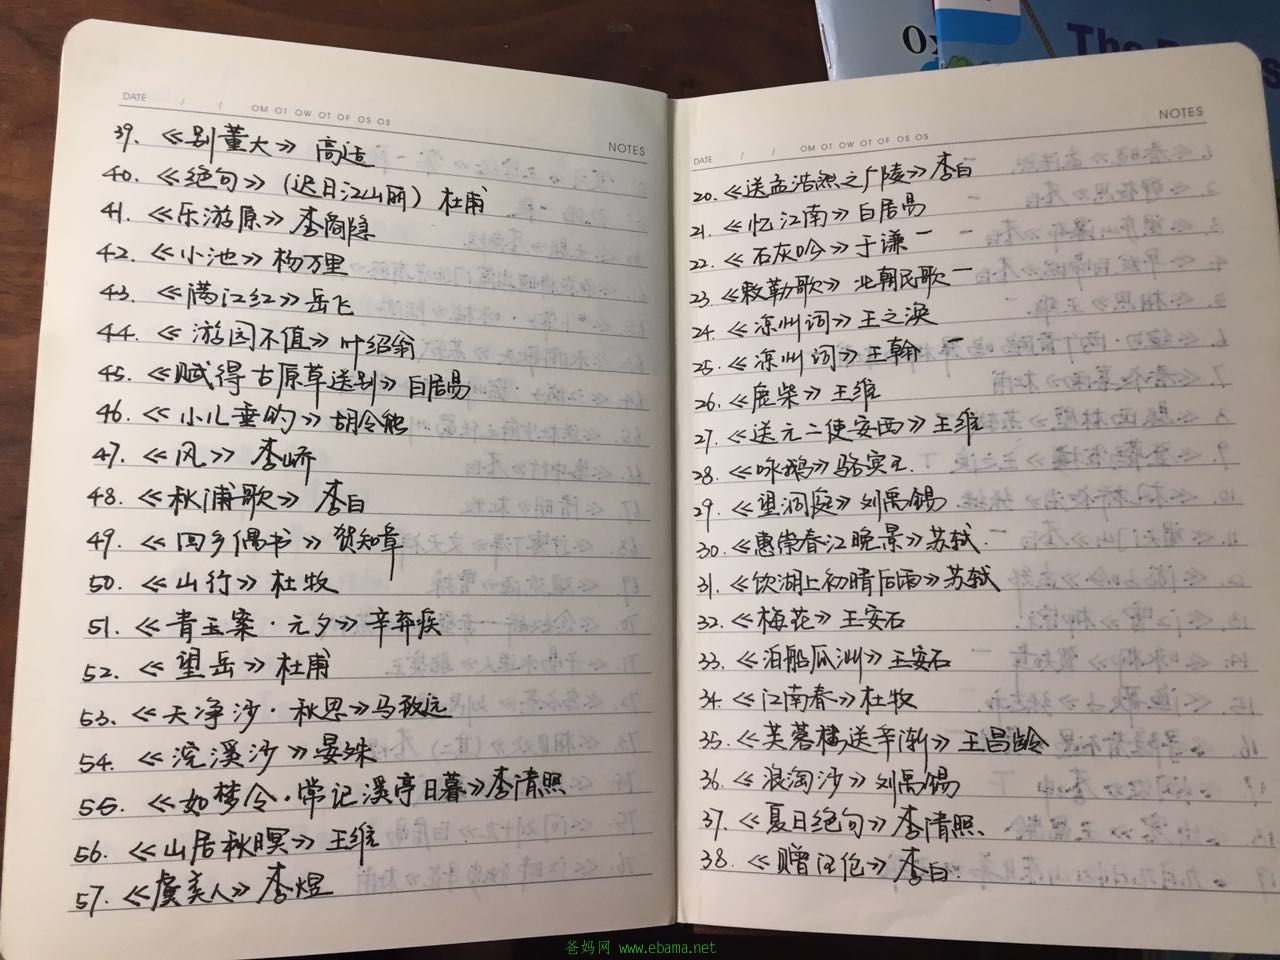 Ox
The
DATE / / OM OT OW OT OF OS OS
NOTES
39. 《别董大》 高适
40. 《绝句》（迟日江山丽）杜甫
41. 《乐游原》李商隐
42. 《小池》杨万里
43. 《满江红》岳飞
44. 《游园不值》叶绍翁
45. 《赋得古原草送别》白居易
46. 《小儿垂钓》胡令能
47. 《风》 李峤
48. 《秋浦歌》 李白
49. 《回乡偶书》 贺知章
50. 《山行》杜牧
51. 《青玉案·元夕》辛弃疾
52. 《望岳》杜甫
53. 《天净沙·秋思》马致远
54. 《浣溪沙》晏殊
55. 《如梦令·常记溪亭日暮》李清照
56. 《山居秋暝》王维
57. 《虞美人》李煜
NOTES
DATE / / OM OT OW OT OF OS OS
20. 《送孟浩然之广陵》李白
21. 《忆江南》白居易
22. 《石灰吟》于谦 一
23. 《敕勒歌》北朝民歌 一
24. 《凉州词》王之涣
25. 《凉州词》王翰 一
26. 《鹿柴》王维
27. 《送元二使安西》王维
28. 《咏鹅》骆宾王.
29. 《望洞庭》刘禹锡
30. 《惠崇春江晚景》苏轼.
31. 《饮湖上初晴后雨》苏轼
32. 《梅花》王安石
33. 《泊船瓜洲》王安石
34. 《江南春》杜牧
35. 《芙蓉楼送辛渐》王昌龄
36. 《浪淘沙》刘禹锡
37. 《夏日绝句》李清照、
38. 《赠汪伦》李白
爸妈网 www.ebama.net